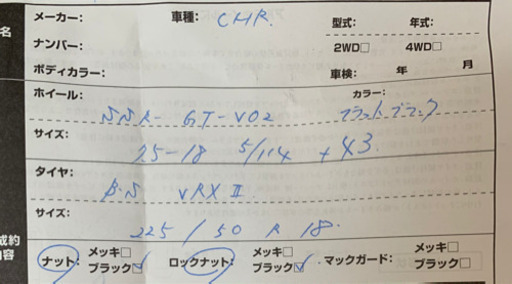 名
メーカー: 車種: CHR. 型式: 年式:
ナンバー: 2WD□ 4WD□
ボディカラー: 車検: 年 月
ホイール: カラー:
SSR GT-V02 フラットブラック
サイズ:
7.5-18 5/114 +43.
タイヤ:
B.S VRX II
サイズ:
225/50 R 18.
成約 ナット: メッキ□ ロックナット: メッキ□ マックガード: メッキ□
内容 ブラック☑ ブラック☑ ブラック□